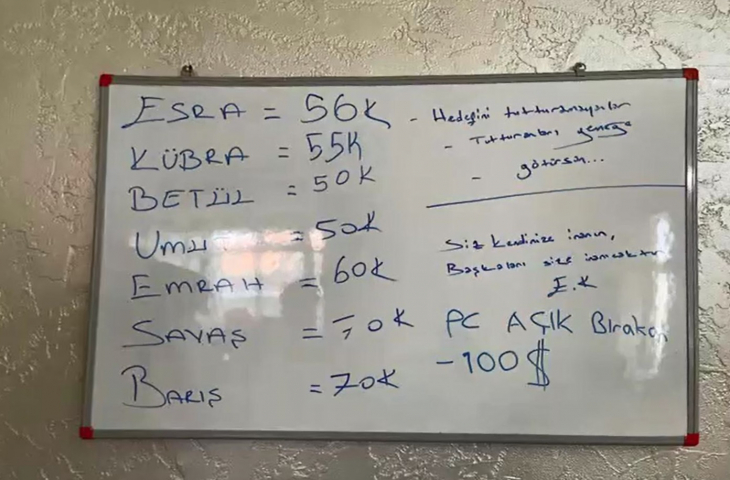 ESRA = 56K
KÜBRA = 55K
BETÜL = 50K
UMUT = 50K
EMRAH = 60K
SAVAŞ = 70K
BARIŞ = 70K
- Hedefini tutturamayanlar
- Tutturanları yemeğe
- götürsün...
Siz kendinize inanın,
Başkaları size inanacaktır
E.K
PC AÇIK Bırakan
-100$